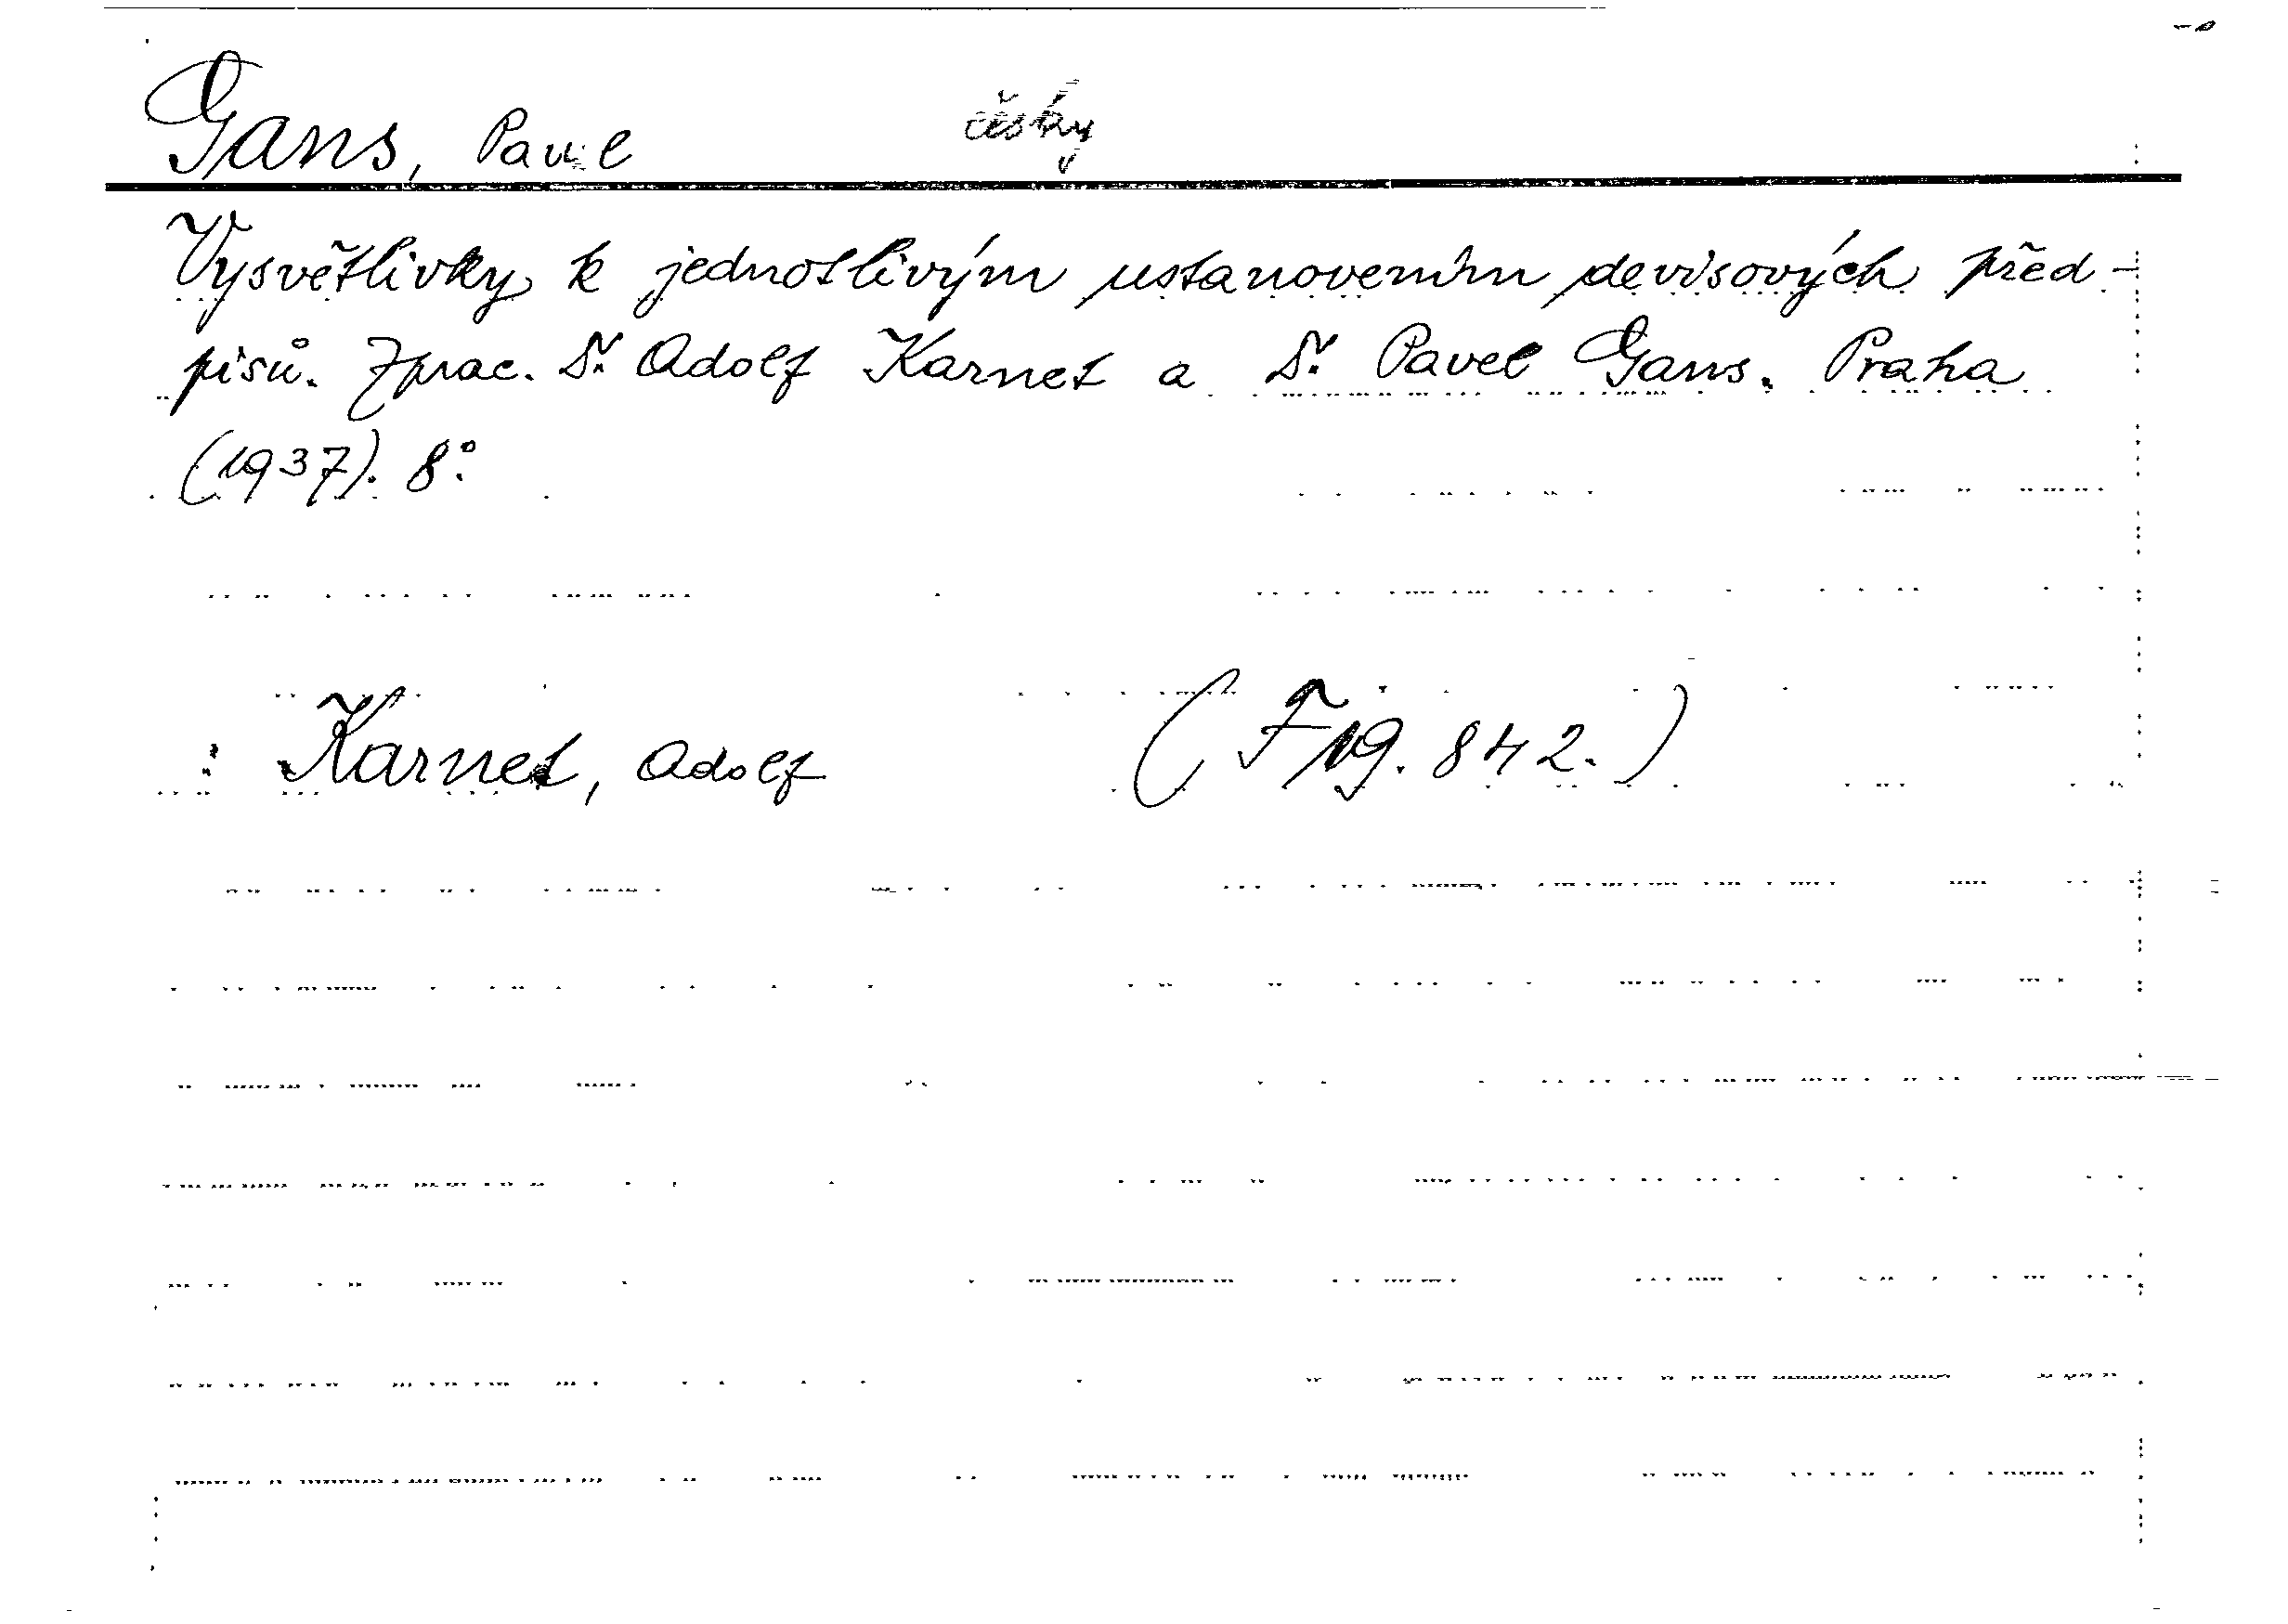 Gans, Pavel česky
Vysvětlivky k jednotlivým ustanovením devisových před-
pisů. Zprac. Dr. Adolf Karnet a Dr. Pavel Gans. Praha
(1937). 8°.
: Karnet, Adolf (F 19. 842.)